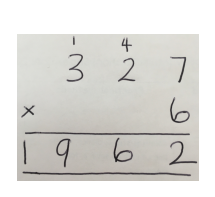 1 4
3 2 7
× 6
1 9 6 2